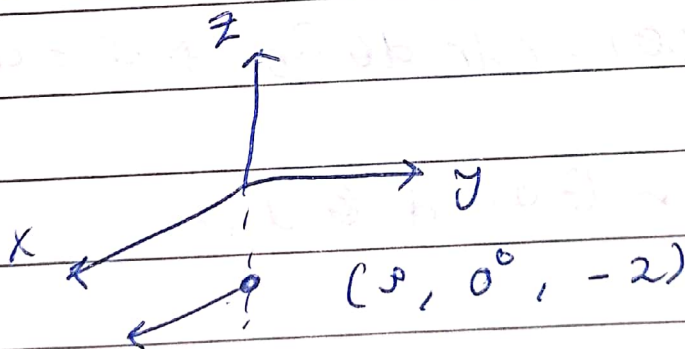 z
y
x
(ρ, 0°, -2)